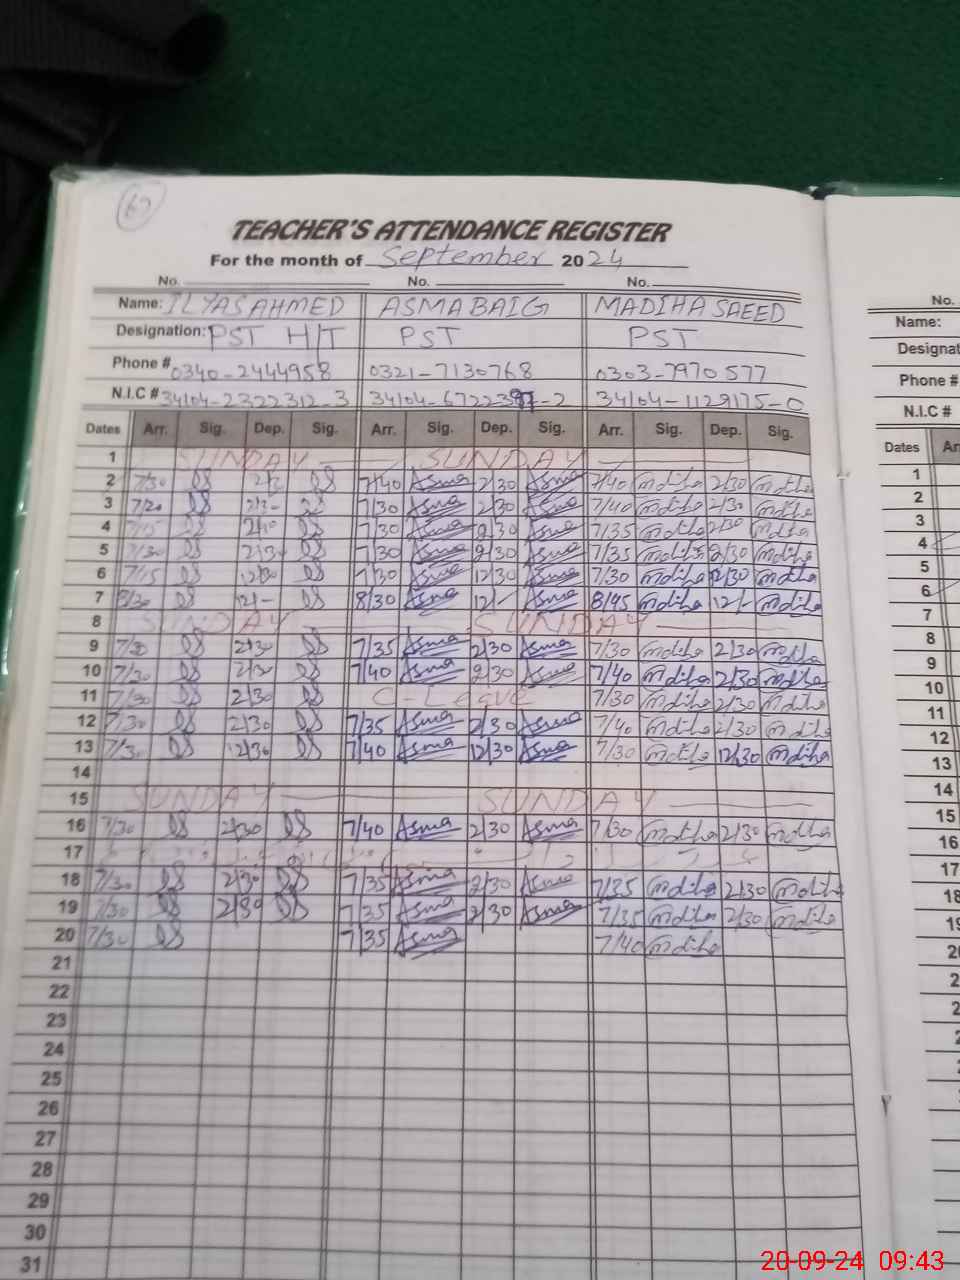 67
TEACHER'S ATTENDANCE REGISTER
For the month of September 2024
No. No. No.
Name: ILYAS AHMED ASMA BAIG MADIHA SAEED
Designation: PST H/T PST PST
Phone # 0340-2444958 0321-7130768 0303-7970577
N.I.C # 34104-2322312-3 34104-6722397-2 34104-1129175-0
Dates Arr. Sig. Dep. Sig. Arr. Sig. Dep. Sig. Arr. Sig. Dep. Sig.
1 SUNDAY SUNDAY
2 7/30 7/40 Asma 2/30 Asma 7/40 Madiha 2/30 Madiha
3 7/20 7/30 Asma 2/30 Asma 7/40 Madiha 2/30 Madiha
4 7/15 7/30 Asma 2/30 Asma 7/35 Madiha 2/30 Madiha
5 7/30 2/30 7/30 Asma 2/30 Asma 7/35 Madiha 2/30 Madiha
6 7/15 12/30 7/30 Asma 12/30 Asma 7/30 Madiha 12/30 Madiha
7 8/30 12/- 8/30 Asma 12/- Asma 8/45 Madiha 12/- Madiha
8 SUNDAY SUNDAY
9 7/30 2/30 7/35 Asma 2/30 Asma 7/30 Madiha 2/30 Madiha
10 7/30 2/30 7/40 Asma 2/30 Asma 7/40 Madiha 2/30 Madiha
11 7/30 2/30 C-Leave 7/30 Madiha 2/30 Madiha
12 7/30 2/30 7/35 Asma 2/30 Asma 7/40 Madiha 2/30 Madiha
13 7/30 12/30 7/40 Asma 12/30 Asma 7/30 Madiha 12/30 Madiha
14
15 SUNDAY SUNDAY
16 7/30 2/30 7/40 Asma 2/30 Asma 7/30 Madiha 2/30 Madiha
17
18 7/30 2/30 7/35 Asma 2/30 Asma 7/35 Madiha 2/30 Madiha
19 7/30 2/30 7/35 Asma 2/30 Asma 7/35 Madiha 2/30 Madiha
20 7/30 7/35 Asma 7/40 Madiha
21
22
23
24
25
26
27
28
29
30
31
No.
Name:
Phone #
N.I.C #
Dates
1
2
3
4
5
6
7
8
9
10
11
12
13
14
15
16
17
18
20-09-24 09:43